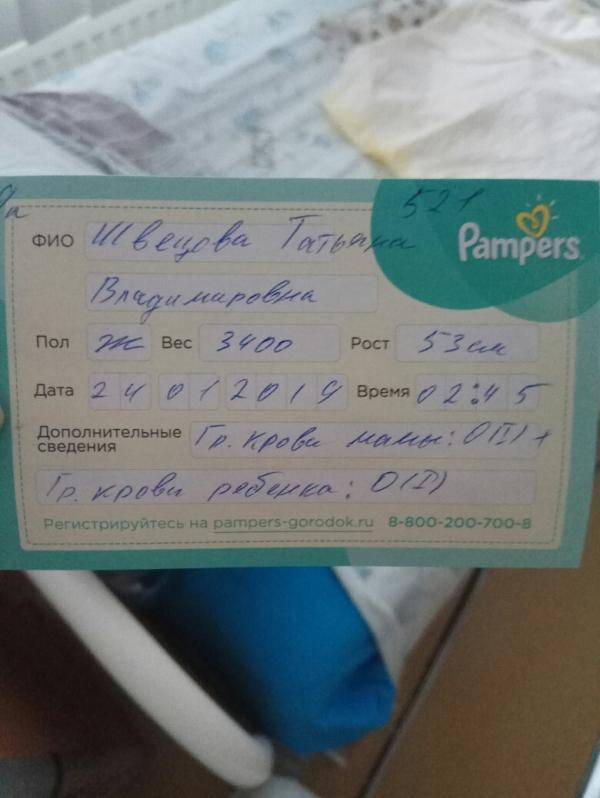 521
Pampers
ФИО Швецова Татьяна
Владимировна
Пол Ж Вес 3400 Рост 53см
Дата 24 01 2019 Время 02:45
Дополнительные сведения Гр. крови мамы: O(I)+
Гр. крови ребенка: O(I)
Регистрируйтесь на pampers-gorodok.ru 8-800-200-700-8